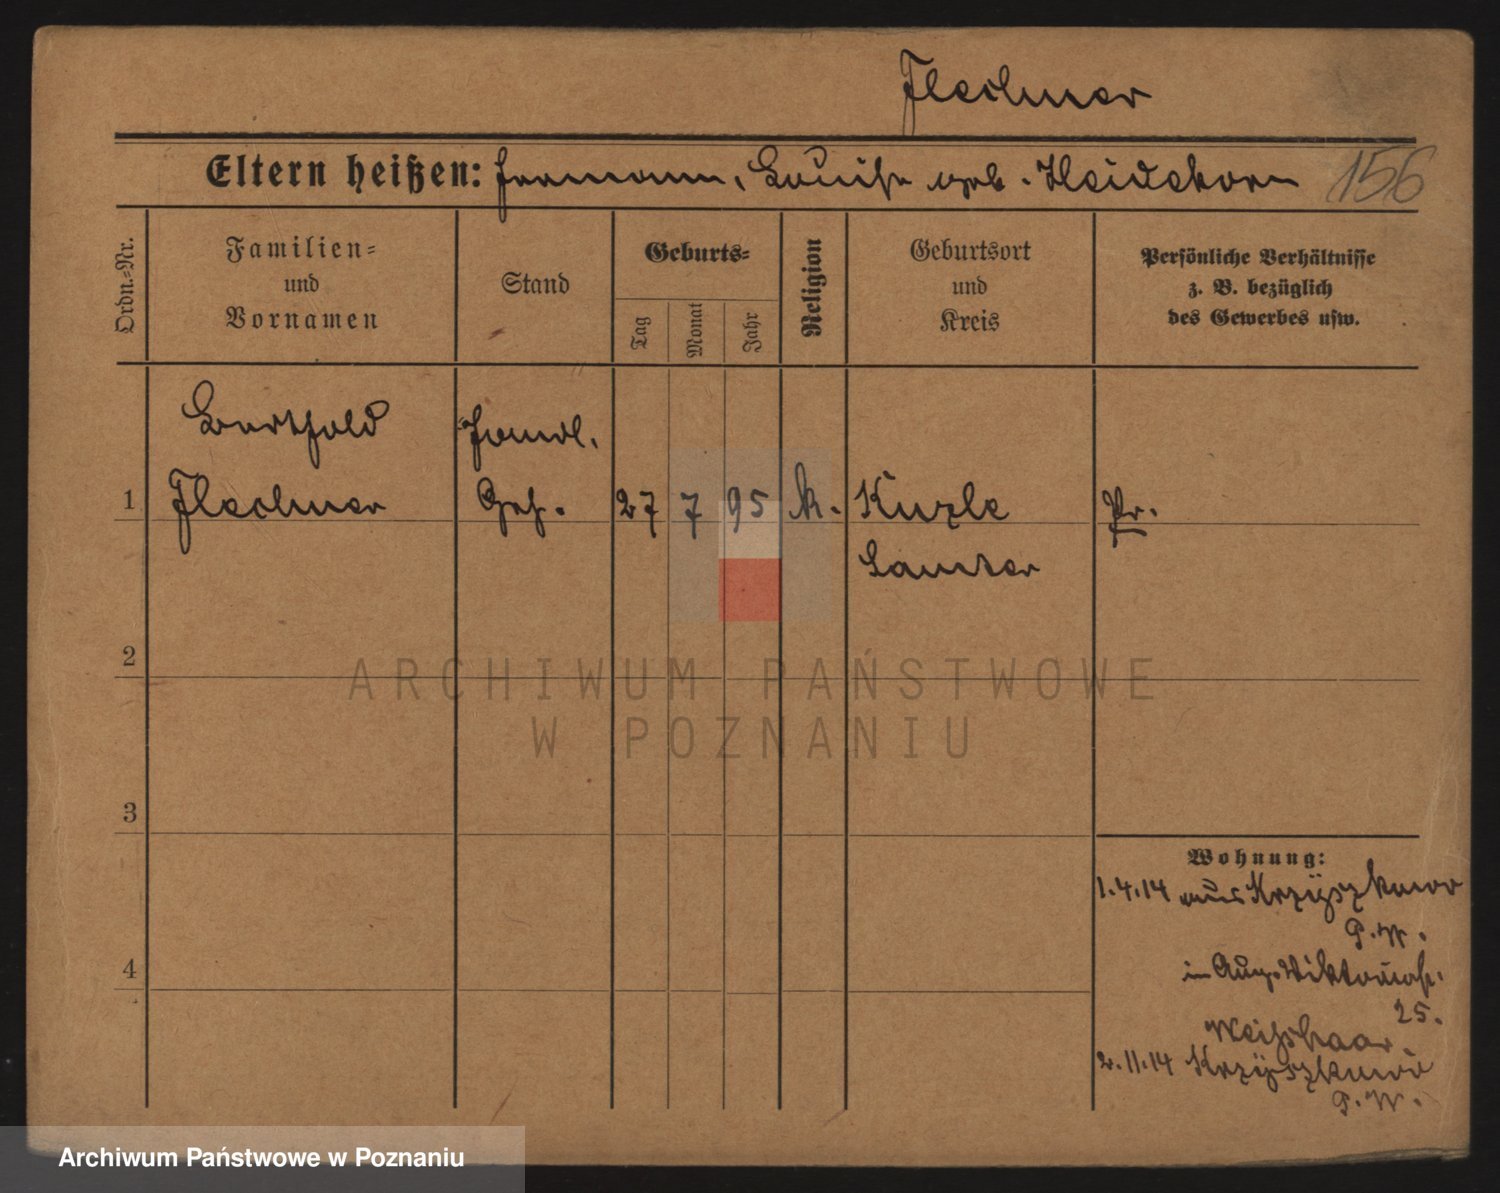 Flechner
Eltern heißen: Hermann, Louise geb. Heidekorn
156
Ordn.=Nr.
Familien=
und
Vornamen
Stand
Geburts=
Tag
Monat
Jahr
Religion
Geburtsort
und
Kreis
Persönliche Verhältnisse
z. B. bezüglich
des Gewerbes usw.
Berthold Handl.
1 Flechner Geh. 27 7 95 k. Kuzle Pr.
Samter
2
3
4
Wohnung:
1.4.14 aus
P.W.
in Aug. Viktoriastr.
25.
2.11.14
P.W.
ARCHIWUM PAŃSTWOWE
W POZNANIU
Archiwum Państwowe w Poznaniu